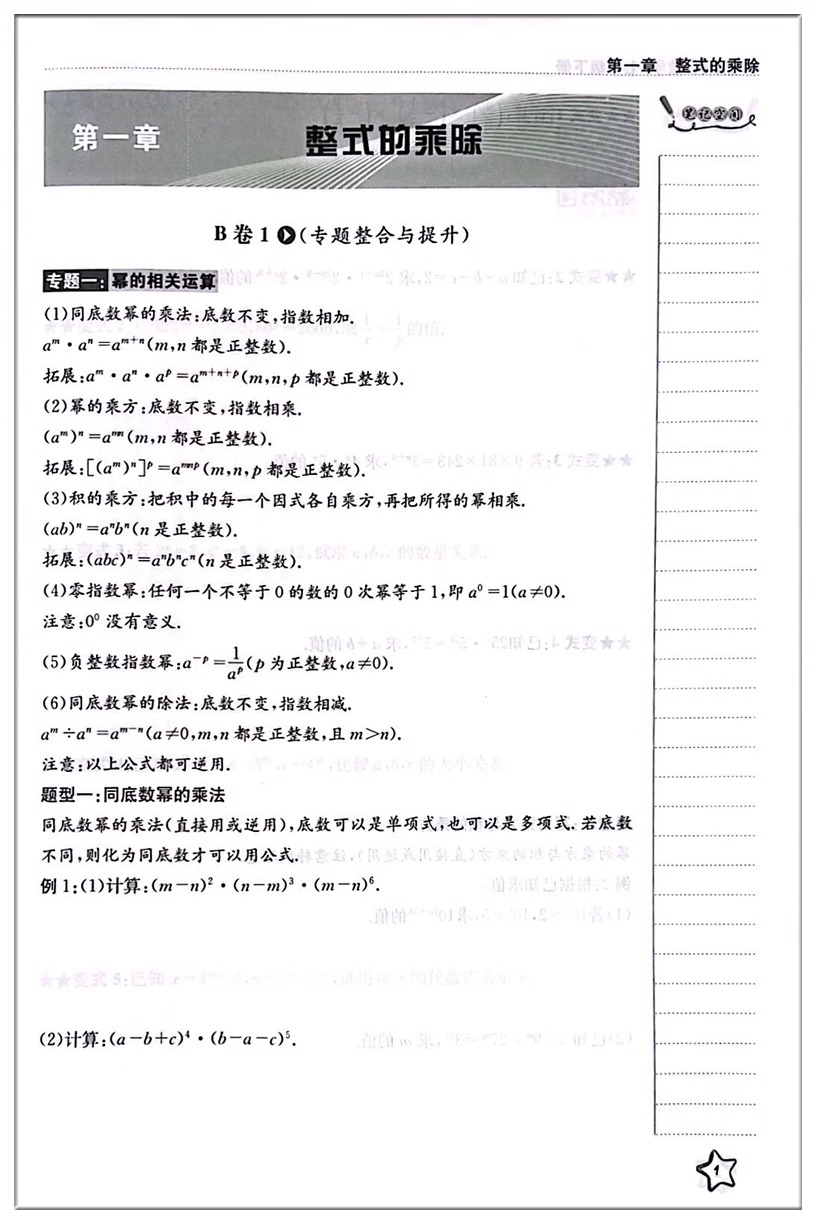 第一章 整式的乘除
第一章 整式的乘除
笔记空间
B卷1(专题整合与提升)
专题一:幂的相关运算
(1)同底数幂的乘法:底数不变,指数相加.
aᵐ·aⁿ=aᵐ⁺ⁿ(m,n都是正整数).
拓展:aᵐ·aⁿ·aᵖ=aᵐ⁺ⁿ⁺ᵖ(m,n,p都是正整数).
(2)幂的乘方:底数不变,指数相乘.
(aᵐ)ⁿ=aᵐⁿ(m,n都是正整数).
拓展:[(aᵐ)ⁿ]ᵖ=aᵐⁿᵖ(m,n,p都是正整数).
(3)积的乘方:把积中的每一个因式各自乘方,再把所得的幂相乘.
(ab)ⁿ=aⁿbⁿ(n是正整数).
拓展:(abc)ⁿ=aⁿbⁿcⁿ(n是正整数).
(4)零指数幂:任何一个不等于0的数的0次幂等于1,即a⁰=1(a≠0).
注意:0⁰没有意义.
(5)负整数指数幂:a⁻ᵖ=1/aᵖ(p为正整数,a≠0).
(6)同底数幂的除法:底数不变,指数相减.
aᵐ÷aⁿ=aᵐ⁻ⁿ(a≠0,m,n都是正整数,且m>n).
注意:以上公式都可逆用.
题型一:同底数幂的乘法
同底数幂的乘法(直接用或逆用),底数可以是单项式,也可以是多项式.若底数
不同,则化为同底数才可以用公式.
例1:(1)计算:(m-n)²·(n-m)³·(m-n)⁶.
(2)计算:(a-b+c)⁴·(b-a-c)⁵.
1